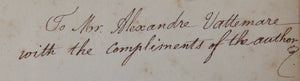 To Mr. Alexandre Vattemare
with the compliments of the author